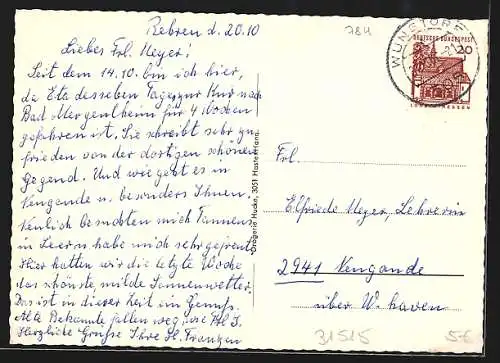 Rebren d. 20.10
Liebes Frl. Meyer!
Seit dem 14.10. bin ich hier,
da Eta desselben Tages zur Kur nach
Bad Mergentheim für 4 Wochen
gefahren ist. Sie schreibt sehr zu-
frieden von der dortigen schönen
Gegend. Und wie geht es in
Nengande u. besonders Ihnen.
Neulich besuchten mich Tannens
in Leern habe mich sehr gefreut.
Hier hatten wir die letzte Woche
das schönste, milde Sonnenwetter.
Das ist in dieser Zeit ein Genuß.
Alle Bekannte fallen weg
Herzliche Grüße Ihre H. Franzen
Drogerie Hucke, 3051 Hagenburg
784
WUNSTORF
DEUTSCHE BUNDESPOST
20
Frl.
Elfriede Meyer, Lehrerin
2941 Nengande
über W. haven
31515
5€